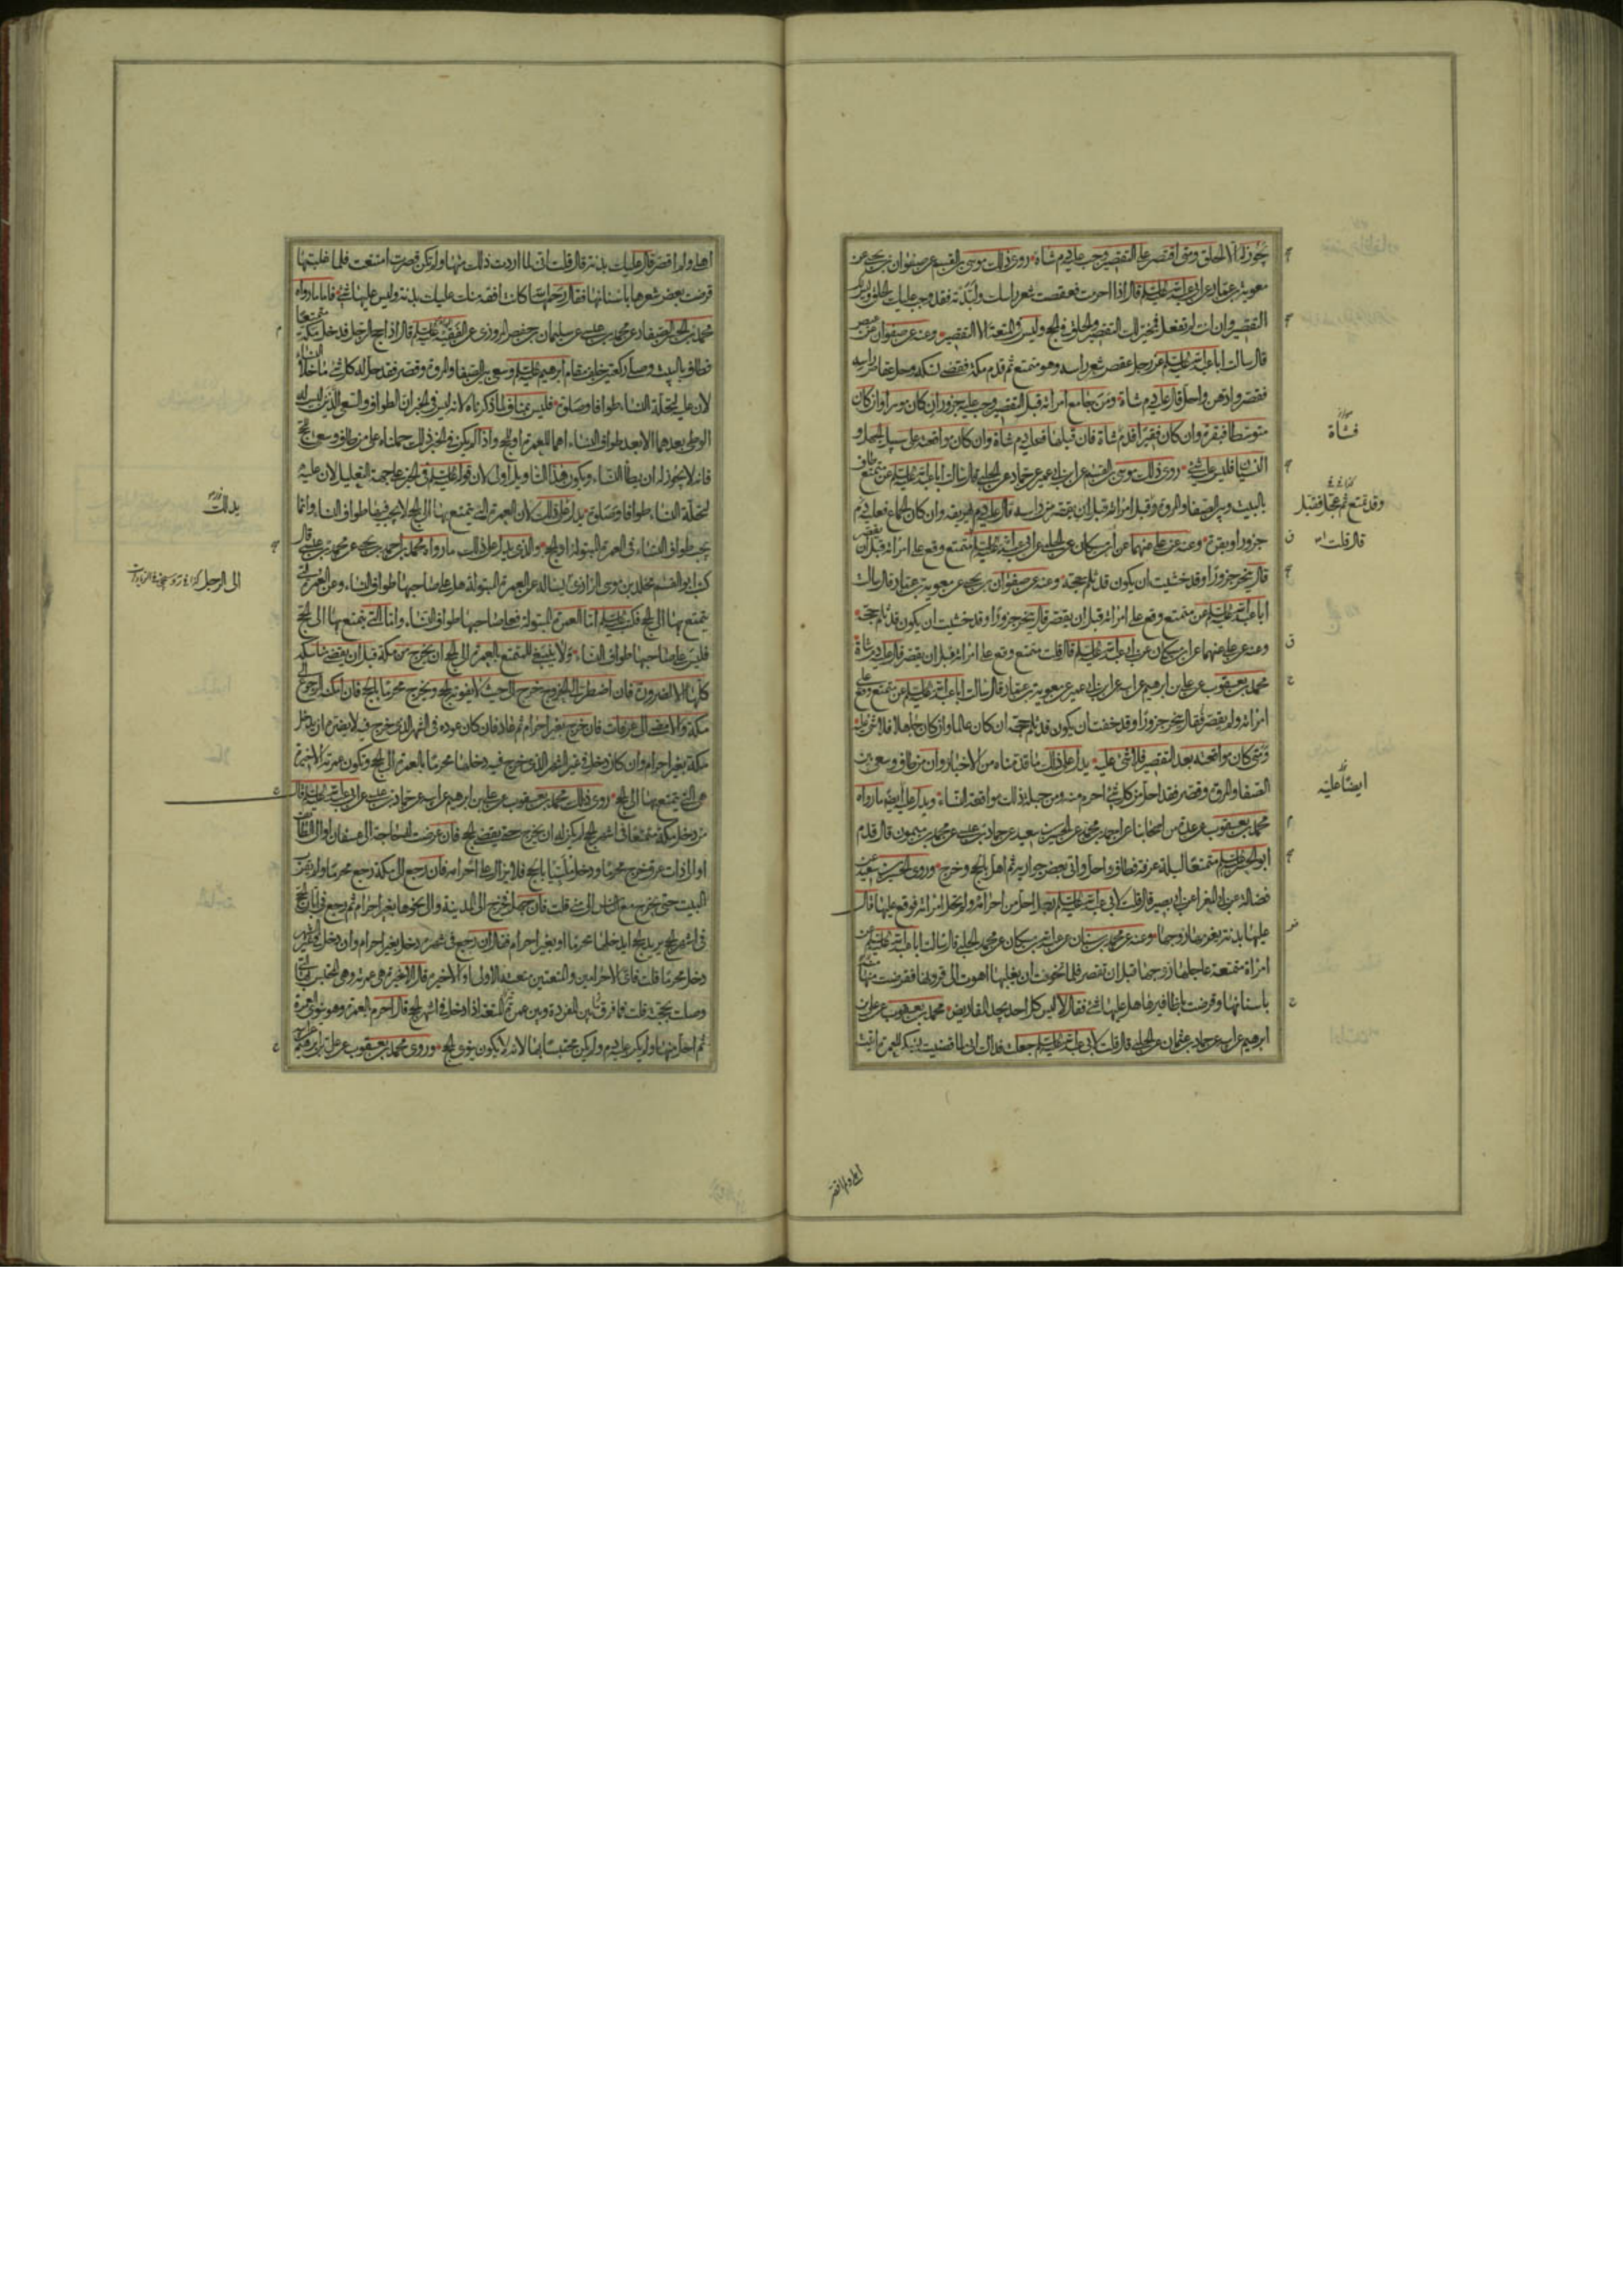 يجوز له الا الحلق ومتى اقتصر على التقصير وجب عليه دم شاة روى ذلك موسى بن القسم عن صفوان بن يحيى عن
معوية بن عمار عن ابى عبد الله عليه السلم قال اذا احرمت فعقصت شعر راسك او لبدته فقد وجب عليك الحلق وليس لك
التقصير وان انت لم تفعل فمخير لك التقصير والحلق فى الحج وليس فى المتعة الا التقصير وعنه عن صفوان عن عيص
قال سالت ابا عبد الله عليه السلم عن رجل عقص شعر راسه وهو متمتع ثم قدم مكة فقضى نسكه وحل عقاص راسه
فقصر وادهن واحل قال عليه دم شاة ومن جامع امراته قبل التقصير وجب عليه جزور ان كان موسرا وان كان
متوسطا فبقرة وان كان فقيرا فدم شاة فان قبلها فعليه دم شاة وان كان مواقعته على سبيل الجهل و
النسيان فليس عليه شئ روى ذلك موسى بن القسم عن ابن ابى عمير عن حماد عن الحلبى قال سالت ابا عبد الله عليه السلم عن متمتع طاف
بالبيت وبين الصفا والمروة وقبل امراته قبل ان يقصر من راسه قال عليه دم يهريقه وان كان الجماع فعليه
جزور او بقرة وعنه عن على عنهما عن ابن مسكان عن الحلبى عن ابى عبد الله عليه السلم متمتع وقع على امراته قبل ان يقصر
قال ينحر جزورا وقد خشيت ان يكون قد ثلم حجه وعنه عن صفوان بن يحيى عن معوية بن عمار قال سالت
ابا عبد الله عليه السلم عن متمتع وقع على امراته قبل ان يقصر قال ينحر جزورا وقد خشيت ان يكون قد ثلم حجه
وعنه عن على عنهما عن ابن مسكان عن ابى عبد الله عليه السلم قال قلت متمتع وقع على امراته قبل ان يقصر قال عليه دم شاة
محمد بن يعقوب عن على بن ابرهيم عن ابيه عن ابن ابى عمير عن معوية بن عمار قال سالت ابا عبد الله عليه السلم عن متمتع وقع على
امراته ولم يقصر فقال ينحر جزورا وقد خفت ان يكون قد ثلم حجه ان كان عالما وان كان جاهلا فلا شئ عليه
ومتى كان مواقعته بعد التقصير فلا شئ عليه يدل على ذلك ما قدمناه من الاخبار وان من طاف وسعى بين
الصفا والمروة وقصر فقد احل من كل شئ احرم منه ومن جملة ذلك مواقعة النساء ويدل عليه ايضا ما رواه
محمد بن يعقوب عن عدة من اصحابنا عن احمد بن محمد عن الحسين بن سعيد عن حماد بن عيسى عن محمد بن ميمون قال قدم
ابو الحسن عليه السلم متمتعا ليلة عرفة فطاف واحل واتى بعض جواريه ثم اهل بالحج وخرج وروى الحسين بن سعيد عن
فضالة عن ابى المغرا عن ابى بصير قال قلت لابى عبد الله عليه السلم رجل احل من احرامه ولم تحل امراته فوقع عليها قال
عليها بدنة يغرمها زوجها وعنه عن محمد بن سنان عن عبد الله بن مسكان عن محمد الحلبى قال سالت ابا عبد الله عليه السلم عن
امراة متمتعة عاجلها زوجها قبل ان تقصر فلما تخوفت ان يغلبها اهوت الى قرونها فقرضت منها
باسنانها وقرضت باظافيرها هل عليها شئ فقال لا ليس كل احد يجد المقاريض محمد بن يعقوب عن على بن
ابرهيم عن ابيه عن حماد بن عثمان عن الحلبى قال قلت لابى عبد الله عليه السلم جعلت فداك انى لما قضيت نسكى للعمرة اتيت
فشاة
وقد تمتع ثم عجل فقبل
قال قلت
ايضا عليه
اهلى ولم اقصر
اهلى ولم اقصر قال عليك بدنة قال قلت انى لما اردت ذلك منها ولم تكن قصرت امتنعت فلما غلبتها
قرضت بعض شعرها باسنانها فقال رحمها الله كانت افقه منك عليك بدنة وليس عليها شئ فاما ما رواه
محمد بن الحسن الصفار عن محمد بن عيسى عن سليمان بن حفص المروزى عن الفقيه عليه السلم قال اذا حج الرجل فدخل مكة متمتعا
فطاف بالبيت وصلى ركعتين خلف مقام ابرهيم عليه السلم وسعى بين الصفا والمروة وقصر فقد حل له كل شئ ما خلا النساء
لان عليه لتحلة النساء طوافا وصلوة فليس بمناف لما ذكرناه لانه ليس فى الخبر ان الطواف والسعى الذين ليس له
الوطى بعدهما الا بعد طواف النساء اهما للعمرة او للحج واذا لم يكن فى الخبر ذلك حملناه على من طاف وسعى للحج
فانه لا يجوز له ان يطأ النساء ويكون هذا التاويل اولى لان قوله عليه السلم فى الخبر على جهة التعليل لان عليه
لتحلة النساء طوافا وصلوة يدل على ذلك لان العمرة التى يتمتع بها الى الحج لا يجب فيها طواف النساء وانما
يجب طواف النساء فى العمرة المبتولة او الحج والذى يدل على ذلك ما رواه محمد بن احمد بن يحيى عن محمد بن عيسى قال
كتب ابو القسم مخلد بن موسى الرازى يساله عن العمرة المبتولة هل على صاحبها طواف النساء وعن العمرة التى
يتمتع بها الى الحج فكتب عليه السلم اما العمرة المبتولة فعلى صاحبها طواف النساء واما التى يتمتع بها الى الحج
فليس على صاحبها طواف النساء ولا ينبغى للمتمتع بالعمرة الى الحج ان يخرج من مكة قبل ان يقضى مناسكه
كلها الا لضرورة فان اضطر الى الخروج خرج الى حيث لا يفوته الحج ويخرج محرما بالحج فان امكنه الرجوع الى
مكة والا مضى الى عرفات فان خرج بغير احرام ثم عاد فان كان عوده فى الشهر الذى خرج فيه لا يضره ان يدخل
مكة بغير احرام وان كان دخل فى غير الشهر الذى خرج فيه دخلها محرما بالعمرة الى الحج وتكون عمرته الاخيرة
هى التى يتمتع بها الى الحج روى ذلك محمد بن يعقوب عن على بن ابرهيم عن ابيه عن حماد بن عيسى عن ابى عبد الله عليه السلم قال
من دخل مكة متمتعا فى اشهر الحج لم يكن له ان يخرج حتى يقضى الحج فان عرضت له حاجة الى عسفان او الى الطائف
او الى ذات عرق خرج محرما ودخل ملبيا بالحج فلا يزال على احرامه فان رجع الى مكة رجع محرما ولم يقرب
البيت حتى يخرج مع الناس الى منى قلت فان جهل فخرج الى المدينة والى نحوها بغير احرام ثم رجع فى ابان الحج
فى اشهر الحج يريد الحج ايدخلها محرما او بغير احرام فقال ان رجع فى شهره دخل بغير احرام وان دخل فى غير الشهر
دخل محرما قلت فاى الاحرامين والمتعتين متعته الاولى او الاخيرة قال الاخيرة هى عمرته وهى المحتبس بها التى
وصلت بحجته قلت فما فرق بين المفردة وبين عمرة المتعة اذا دخل فى اشهر الحج قال احرم بالعمرة وهو ينوى العمرة
ثم احل منها ولم يكن عليه دم ولم يكن محتبسا بها لانه لا يكون ينوى الحج وروى محمد بن يعقوب عن على بن ابرهيم
يدلك
الى الرجل